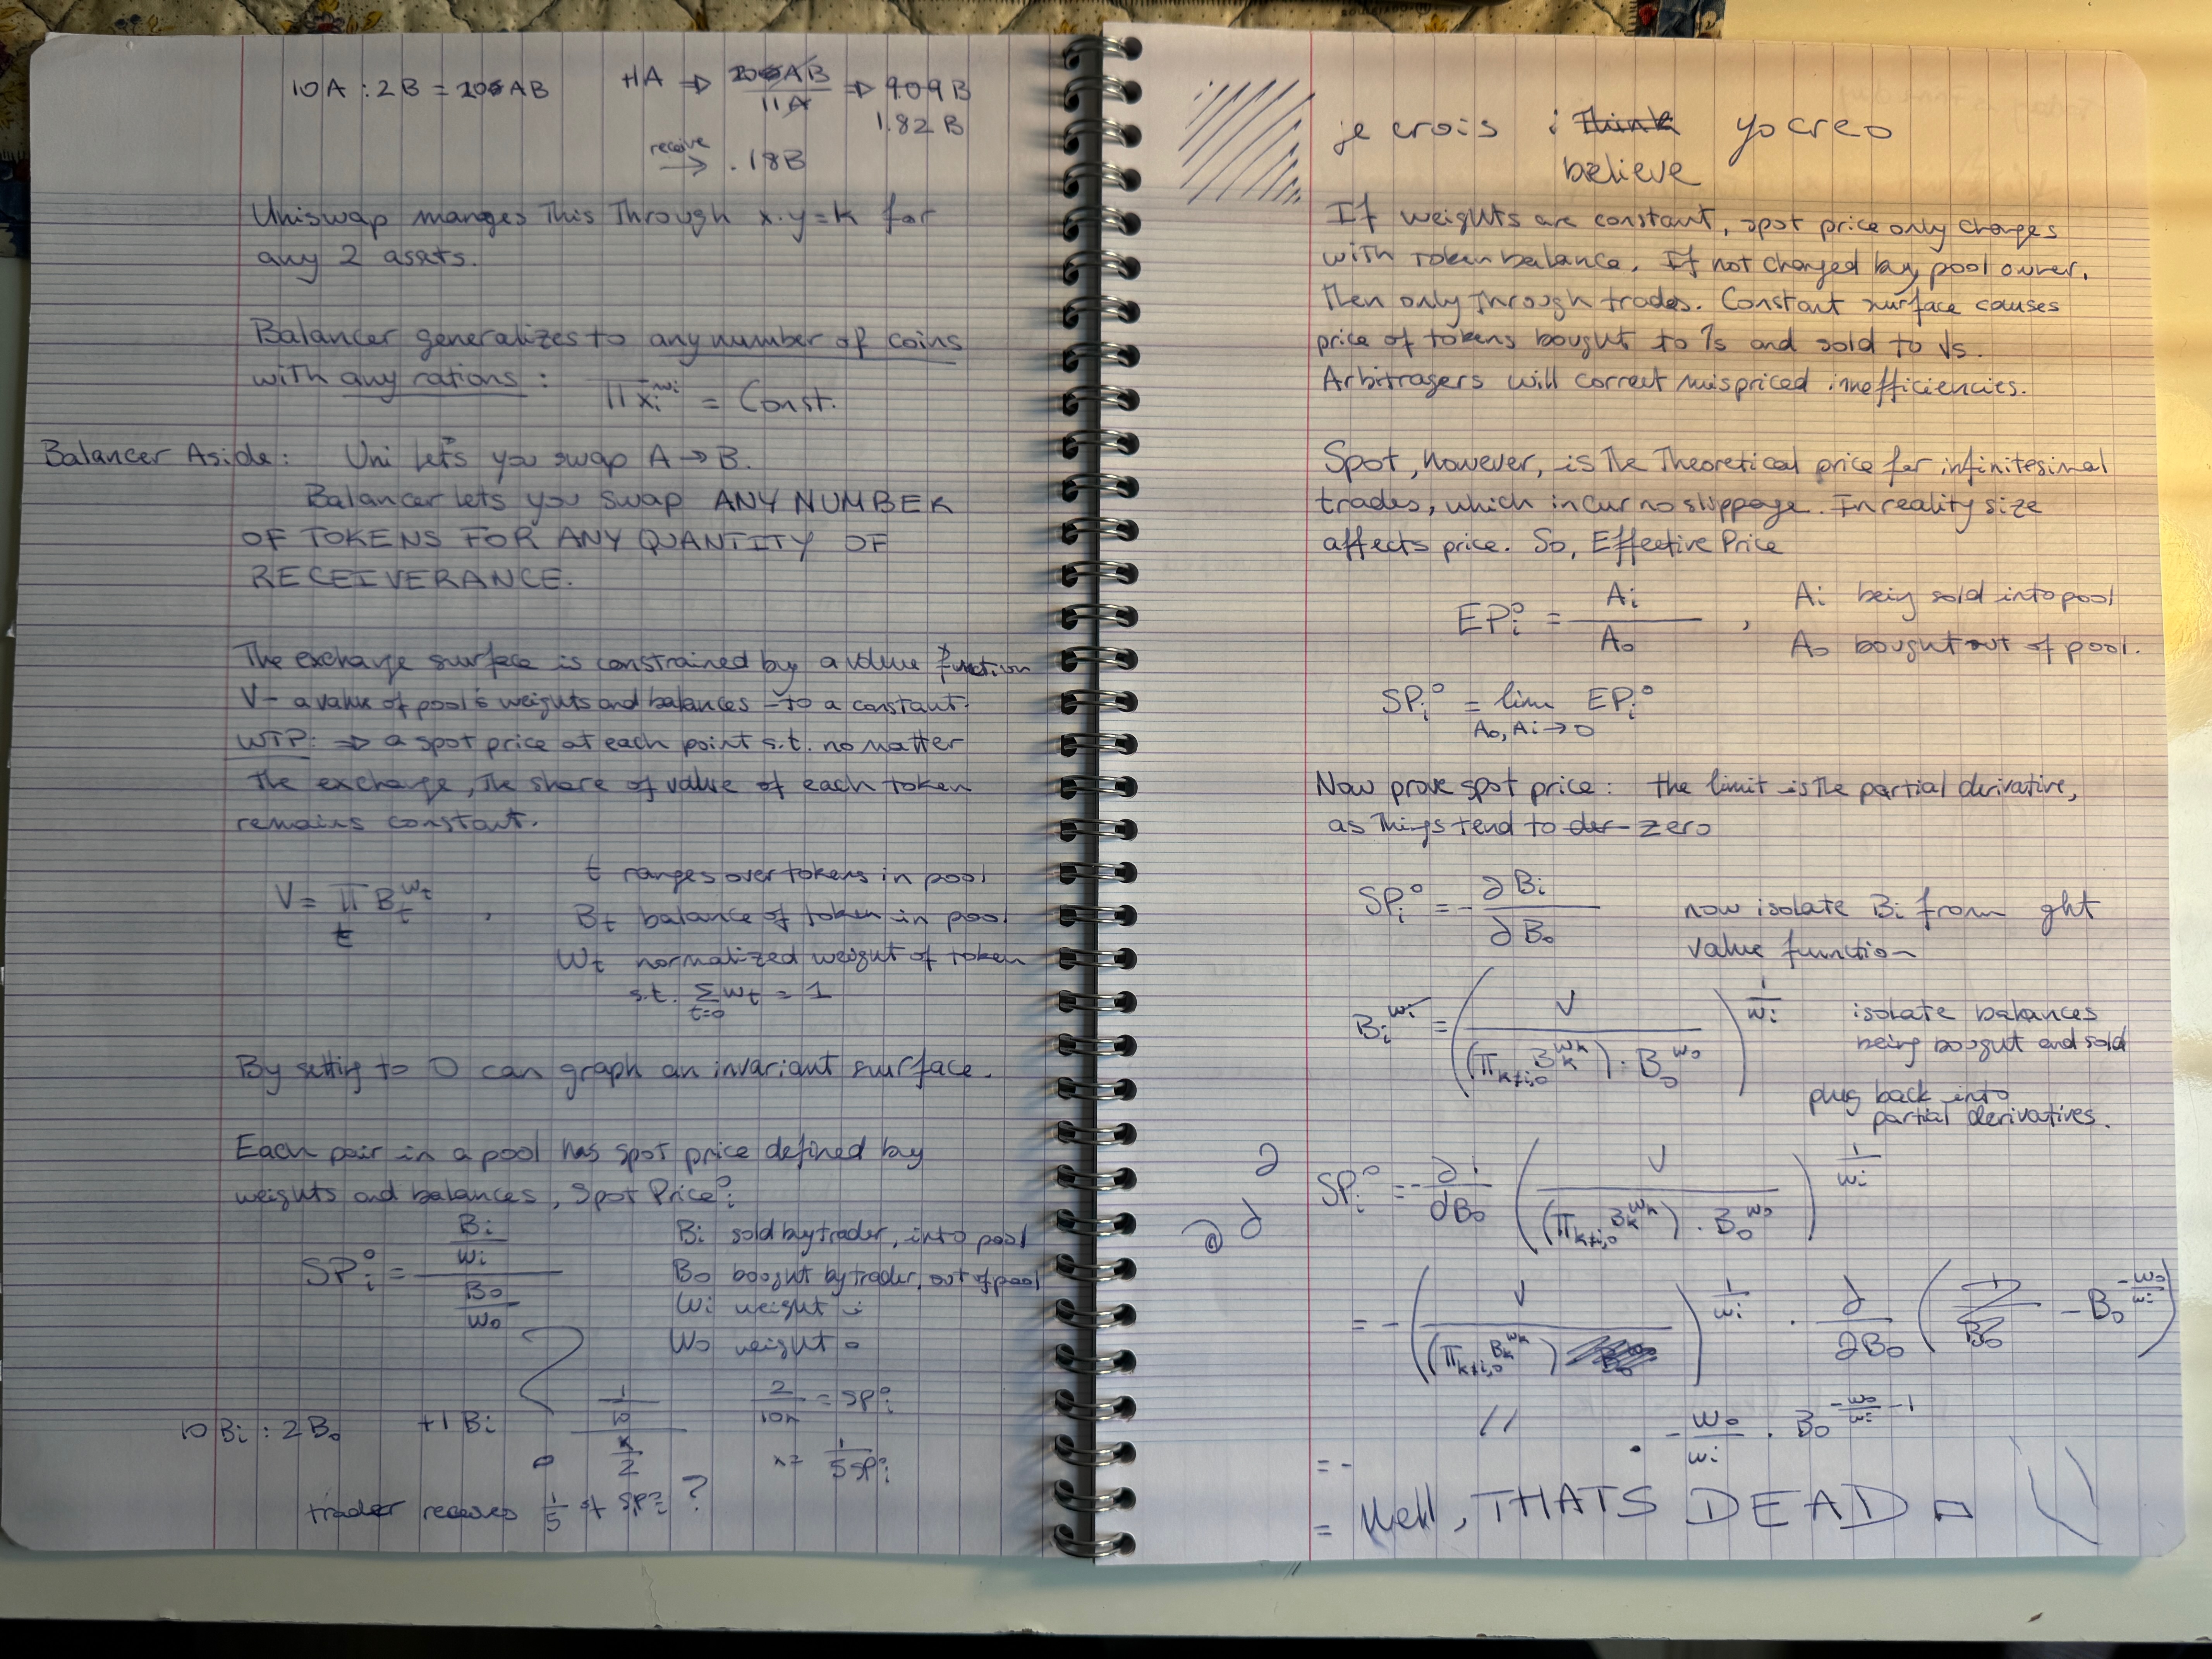 10A : 2B = 20 AB
+1A ⇒ 20AB / 11A ⇒ .909B
1.82 B
receive → .18B
Uniswap manges This Through x·y=k for
any 2 assets.
Balancer generalizes to any number of coins
with any rations : Π xᵢ^wᵢ = Const.
Balancer Aside: Uni lets you swap A → B.
Balancer lets you swap ANY NUMBER
OF TOKENS FOR ANY QUANTITY OF
RECEIVERANCE.
The exchange surface is constrained by a value function
V – a value of pool's weights and balances – to a constant.
WTP: ⇒ a spot price at each point s.t. no matter
the exchange, The share of value of each token
remains constant.
V = Π_t B_t^w_t , t ranges over tokens in pool
B_t balance of token in pool
W_t normalized weight of token
s.t. Σ_{t=0} w_t = 1
By setting to 0 can graph an invariant surface.
Each pair in a pool has spot price defined by
weights and balances, Spot Price°ᵢ
SPᵢ° = (Bi / wi) / (Bo / wo)
Bi sold by trader, into pool
Bo bought by trader, out of pool
Wi weight i
Wo weight o
10 Bi : 2 Bo +1 Bi (1/10) / (x/2)
2/10x = SPᵢ°
x = 1 / 5SPᵢ°
trader receives 1/5 of SPᵢ° ?
je crois i think yo creo
believe
If weights are constant, spot price only changes
with token balance. If not changed by pool owner,
Then only Through trades. Constant surface causes
price of tokens bought to ↑s and sold to ↓s.
Arbitragers will correct mispriced inefficiencies.
Spot, however, is The Theoretical price for infinitesimal
trades, which incur no slippage. In reality size
affects price. So, Effective Price
EPᵢ° = Ai / Ao , Ai being sold into pool
Ao bought out of pool.
SPᵢ° = lim_{Ao, Ai → 0} EPᵢ°
Now prove spot price: the limit is The partial derivative,
as Things tend to der zero
SPᵢ° = - ∂Bi / ∂Bo now isolate Bi from ght
value function
Bi^wi = ( V / ((Π_{k≠i,o} B_k^w_k) · Bo^wo) )^(1/wi) isolate balances
being bought and sold
plug back into
partial derivatives.
∂
SPᵢ° = - ∂/∂Bo ( V / ((Π_{k≠i,o} B_k^w_k) · Bo^wo) )^(1/wi)
= - ( V / (Π_{k≠i,o} B_k^w_k) )^(1/wi) · ∂/∂Bo ( - Bo^(-wo/wi) )
= - " · - wo/wi · Bo^(-wo/wi - 1)
= Well, THATS DEAD